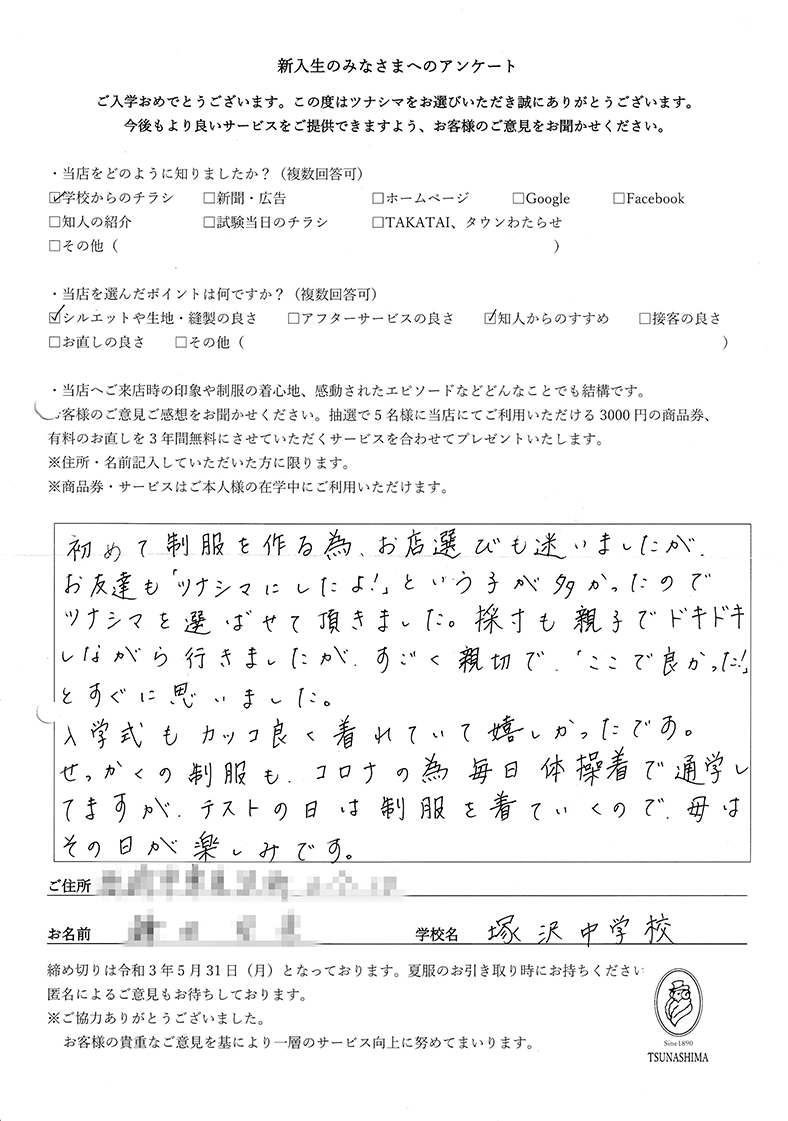 新入生のみなさまへのアンケート
ご入学おめでとうございます。この度はツナシマをお選びいただき誠にありがとうございます。
今後もより良いサービスをご提供できますよう、お客様のご意見をお聞かせください。
・当店をどのように知りましたか？（複数回答可）
☑学校からのチラシ □新聞・広告 □ホームページ □Google □Facebook
□知人の紹介 □試験当日のチラシ □TAKATAI、タウンわたらせ
□その他（ ）
・当店を選んだポイントは何ですか？（複数回答可）
☑シルエットや生地・縫製の良さ □アフターサービスの良さ ☑知人からのすすめ □接客の良さ
□お直しの良さ □その他（ ）
・当店へご来店時の印象や制服の着心地、感動されたエピソードなどどんなことでも結構です。
客様のご意見ご感想をお聞かせください。抽選で５名様に当店にてご利用いただける 3000 円の商品券、
有料のお直しを３年間無料にさせていただくサービスを合わせてプレゼントいたします。
※住所・名前記入していただいた方に限ります。
※商品券・サービスはご本人様の在学中にご利用いただけます。
初めて制服を作る為、お店選びも迷いましたが、
お友達も「ツナシマにしたよ!」という子が多かったので
ツナシマを選ばせて頂きました。採寸も親子でドキドキ
しながら行きましたが、すごく親切で、「ここで良かった!」
とすぐに思いました。
入学式もカッコ良く着れていて嬉しかったです。
せっかくの制服も、コロナの為毎日体操着で通学し
てますが、テストの日は制服を着ていくので、母は
その日が楽しみです。
ご住所
お名前 学校名 塚沢中学校
締め切りは令和３年５月 31 日（月）となっております。夏服のお引き取り時にお持ちください
匿名によるご意見もお待ちしております。
※ご協力ありがとうございました。
お客様の貴重なご意見を基により一層のサービス向上に努めてまいります。
Sine1890
TSUNASHIMA